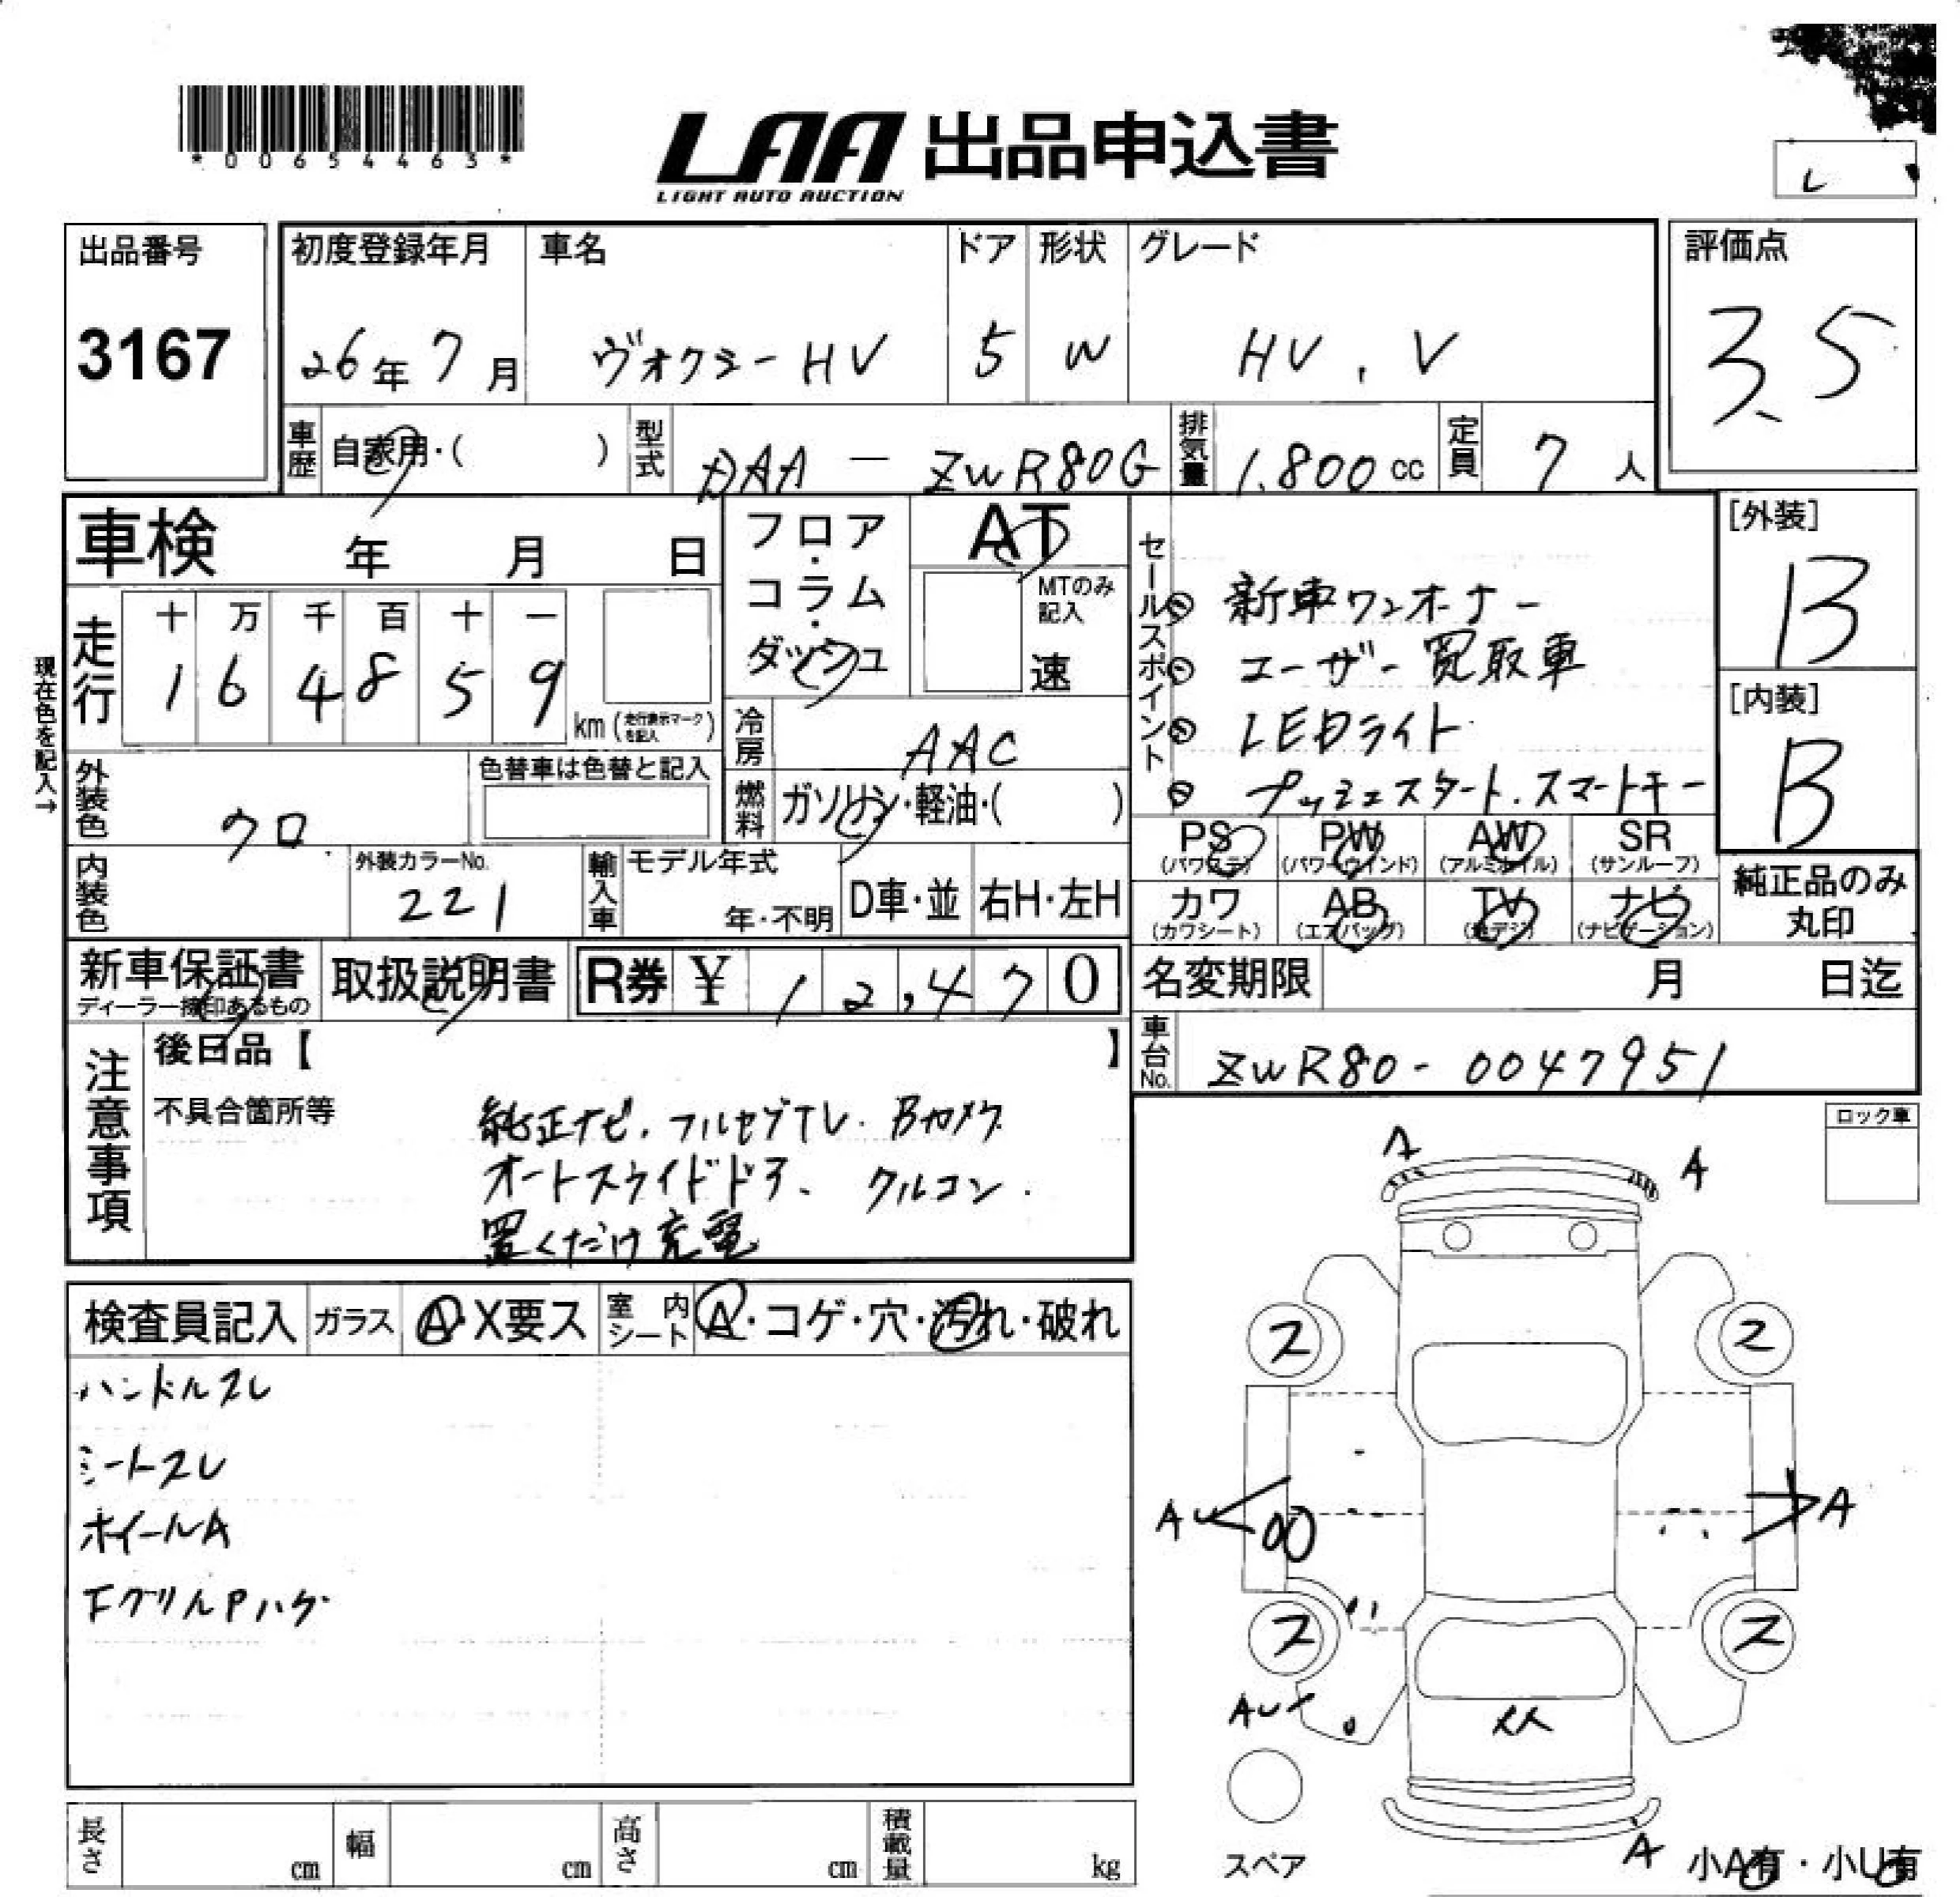 *00654463*
LAA 出品申込書
LIGHT AUTO AUCTION
出品番号
3167
初度登録年月
26年7月
車名
ヴォクシーHV
ドア
5
形状
W
グレード
HV.V
評価点
3.5
車歴
自家用・( )
型式
DAA - ZWR80G
排気量
1.800cc
定員
7人
車検 年 月 日
フロア・コラム・ダッシュ
AT
MTのみ記入
速
セールスポイント
新車ワンオーナー
ユーザー買取車
LEDライト
プッシュスタート.スマートキー
[外装]
B
[内装]
B
現在色を記入→
走行
十 万 千 百 十 一
1 6 4 8 5 9
km (走行表示マークを記入)
冷房
AAC
外装色
クロ
色替車は色替と記入
燃料
ガソリン・軽油・( )
内装色
外装カラーNo.
221
輸入車
モデル年式
年・不明
D車・並
右H・左H
PS (パワステ)
PW (パワーウインド)
AW (アルミホイル)
SR (サンルーフ)
カワ (カワシート)
AB (エアバッグ)
TV (地デジ)
ナビ (ナビゲーション)
純正品のみ
丸印
新車保証書
ディーラー捺印あるもの
取扱説明書
R券 ¥ 12,470
名変期限 月 日迄
車台No.
ZWR80-0047951
注意事項
後日品【 】
不具合箇所等
純正ナビ.フルセグTV.Bカメラ
オートスライドドア、クルコン.
置くだけ充電
ロック車
検査員記入
ガラス
A・X要ス
室内シート
A・コゲ・穴・汚れ・破れ
ハンドルスレ
シートスレ
ホイールA
FグリルPハゲ
A
A
ス
ス
A
A
ス
ス
A
スペア
小A有・小U有
長さ cm
幅 cm
高さ cm
積載量 kg